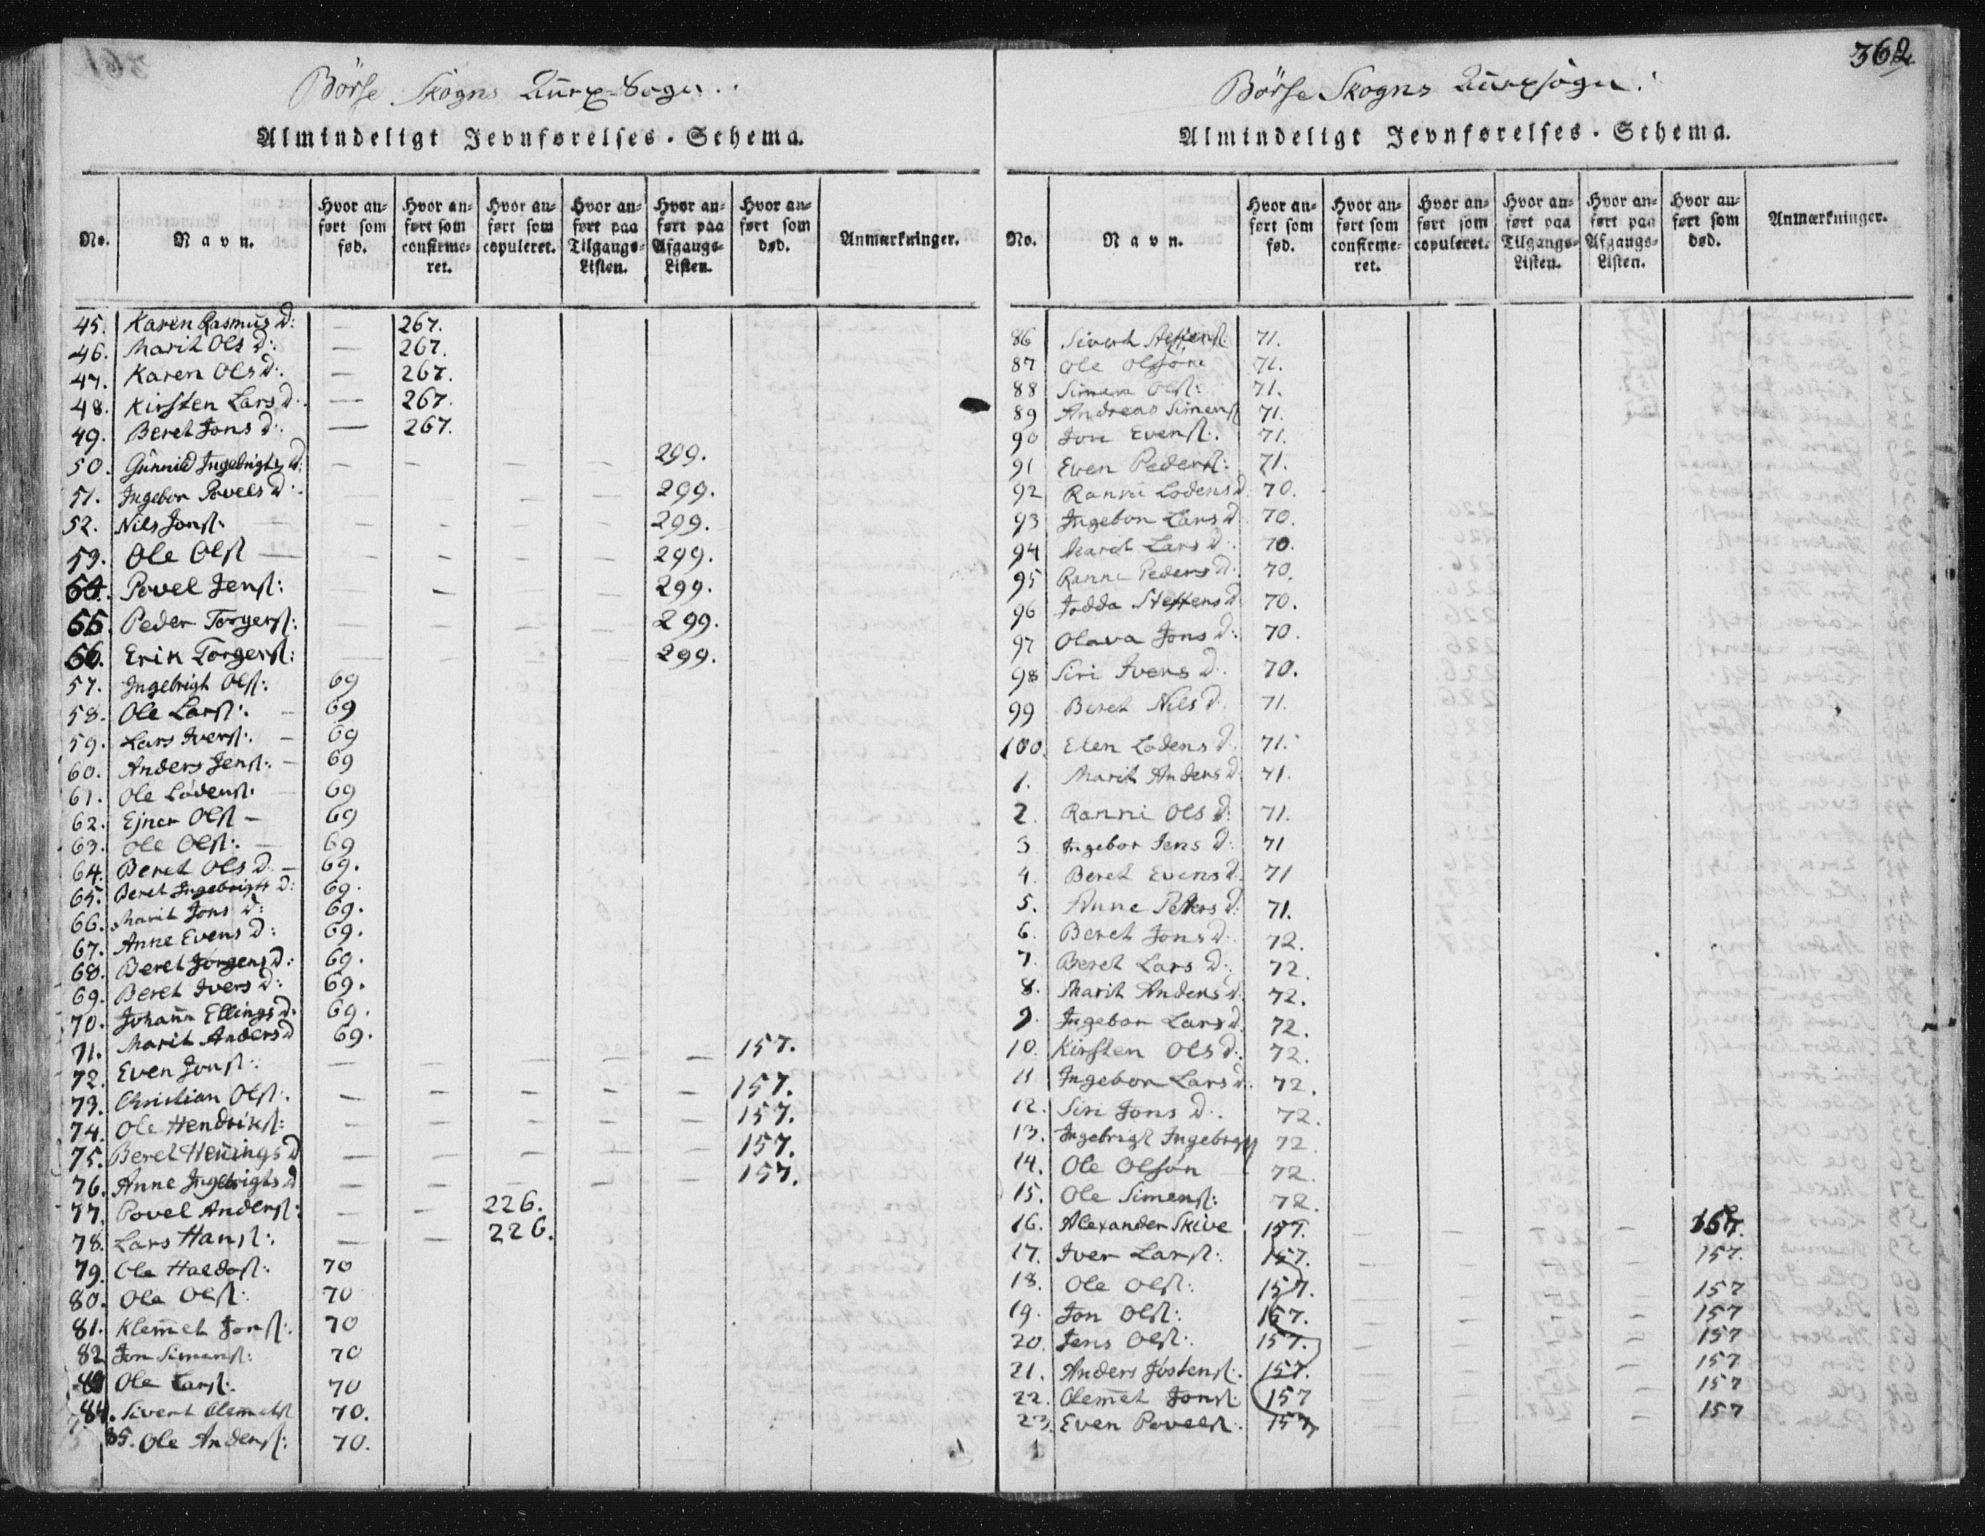 362
Börse Skogns Anx-Sogn.
Almindeligt Jevnførelses-Schema.
No. Navn. Hvor anført som fød. Hvor anført som confirmeret. Hvor anført som copuleret. Hvor anført paa Tilgangs-Listen. Hvor anført paa Afgangs-Listen. Hvor anført som død. Anmærkninger.
45. Karen Rasmus D: — 267.
46. Marit Ols D: — 267.
47. Karen Ols D: — 267.
48. Kirsten Lars D: — 267.
49. Beret Jons D: — 267.
50. Gunnild Ingebrigts D: — — — — 299.
51. Ingebor Povels D: — — — — 299.
52. Nils Jonsl: — — — — 299.
53. Ole Olsl — — — — 299.
54. Povel Jensl: — — — — 299.
55. Peder Torgersl: — — — — 299.
56. Erik Torgersl: — — — — 299.
57. Ingebrigt Olsl: 69
58. Ole Larsl: — 69
59. Lars Iversl: — 69
60. Anders Jensl: — 69
61. Ole Lodensl: — 69
62. Ejner Olsl — 69
63. Ole Olsl: — 69
64. Beret Ols D. — 69.
65. Beret Ingebrigt D: 69.
66. Marit Jons D: 69.
67. Anne Evens D: 69.
68. Beret Jørgens D: 69.
69. Beret Ivers D: 69.
70. Johanna Ellings D: 69.
71. Marit Anders D 69.
72. Even Jonsl: — — — — — 157.
73. Christian Olsl: — — — — — 157.
74. Ole Hendriksl: — — — — — 157.
75. Beret Hennings D — — — — — 157.
76. Anne Ingebrigts D — — — — — 157.
77. Povel Andersl: — — 226.
78. Lars Hansl: — — 226.
79. Ole Haldosl: 70
80. Ole Olsl: 70
81. Klemet Jonsl: 70
82 Jon Simensl: 70
83 Ole Larsl: 70
84. Sivert Clemetsl 70.
85. Ole Andersl: 70.
Börse Skogns Anxsogn.
Almindeligt Jevnførelses-Schema.
No. Navn. Hvor anført som fød. Hvor anført som confirmeret. Hvor anført som copuleret. Hvor anført paa Tilgangs-Listen. Hvor anført paa Afgangs-Listen. Hvor anført som død. Anmærkninger.
86 Sivert Steffensl: 71.
87 Ole Olsøn 71.
88 Simen Olsl: 71.
89 Andreas Simensl 71.
90 Jon Evensl: 71.
91 Even Pedersl: 71.
92 Ranni Lodens D 70.
93 Ingebor Lars D 70.
94 Marit Lars D: 70.
95 Ranni Peders D: 70.
96 Jodda Steffens D 70.
97 Olava Jons D: 70.
98 Siri Ivers D. 70.
99 Beret Nils D: 71.
100. Elen Lodens D. 71.
1. Marit Anders D 71.
2. Ranni Ols D: 71.
3 Ingebor Jens D: 71
4. Beret Evens D: 71
5. Anne Peders D: 71.
6. Beret Jons D: 72.
7 Beret Lars D: 72.
8. Marit Anders D. 72.
9. Ingebor Lars D 72.
10. Kirsten Ols D: 72.
11 Ingebor Lars D. 72.
12. Siri Jons D. 72.
13. Ingebrigt Ingebrig 72
14. Ole Olsøn 72.
15. Ole Simensl: 72.
16. Alexander Skive 157. — — — — 157.
17. Iver Larsl: 157. — — — — 157.
18. Ole Olsl: 157. — — — — 157
19. Jon Olsl: 157. — — — — 157
20. Jens Olsl: 157. — — — — 157
21. Anders Jostensl: 157. — — — — 157
22. Clemet Jonsl: 157 — — — — 157
23. Even Povelsl. 157, — — — — 157